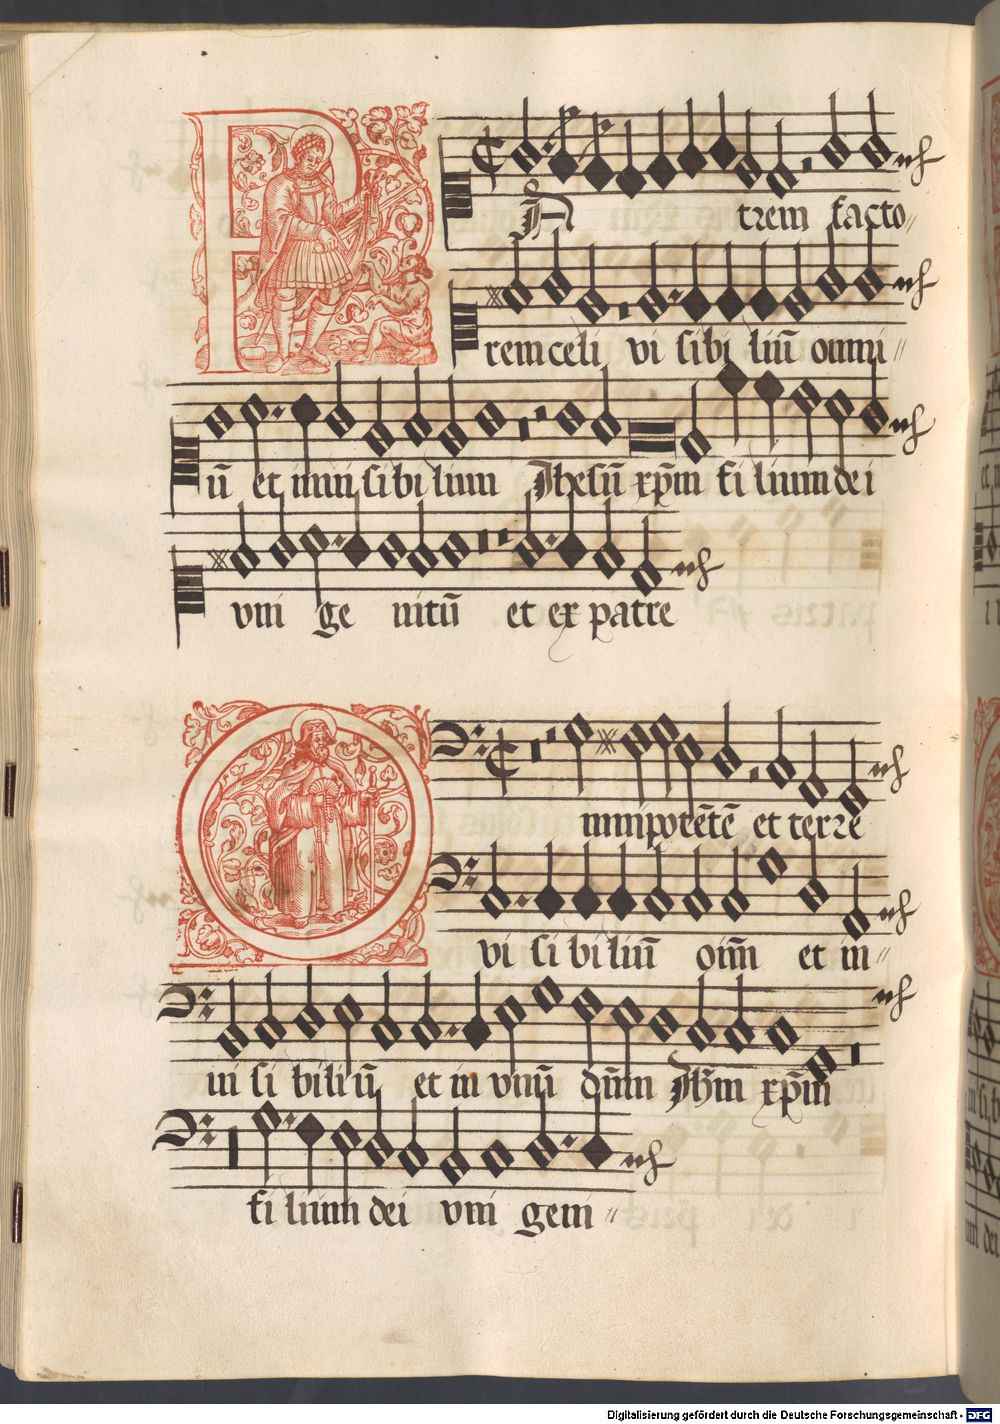 PA trem facto〃
rem celi vi sibi liū omni〃
ū et invi sibi lium Jhesū xp̄m fi lium de i
vni ge nitū et ex patre
O mnipotētē et terre
vi si bi liū oīm et in〃
vi si bili ū et in vnū dn̄m Jh̄m xp̄m
fi lium dei vni geni〃
Digitalisierung gefördert durch die Deutsche Forschungsgemeinschaft - DFG